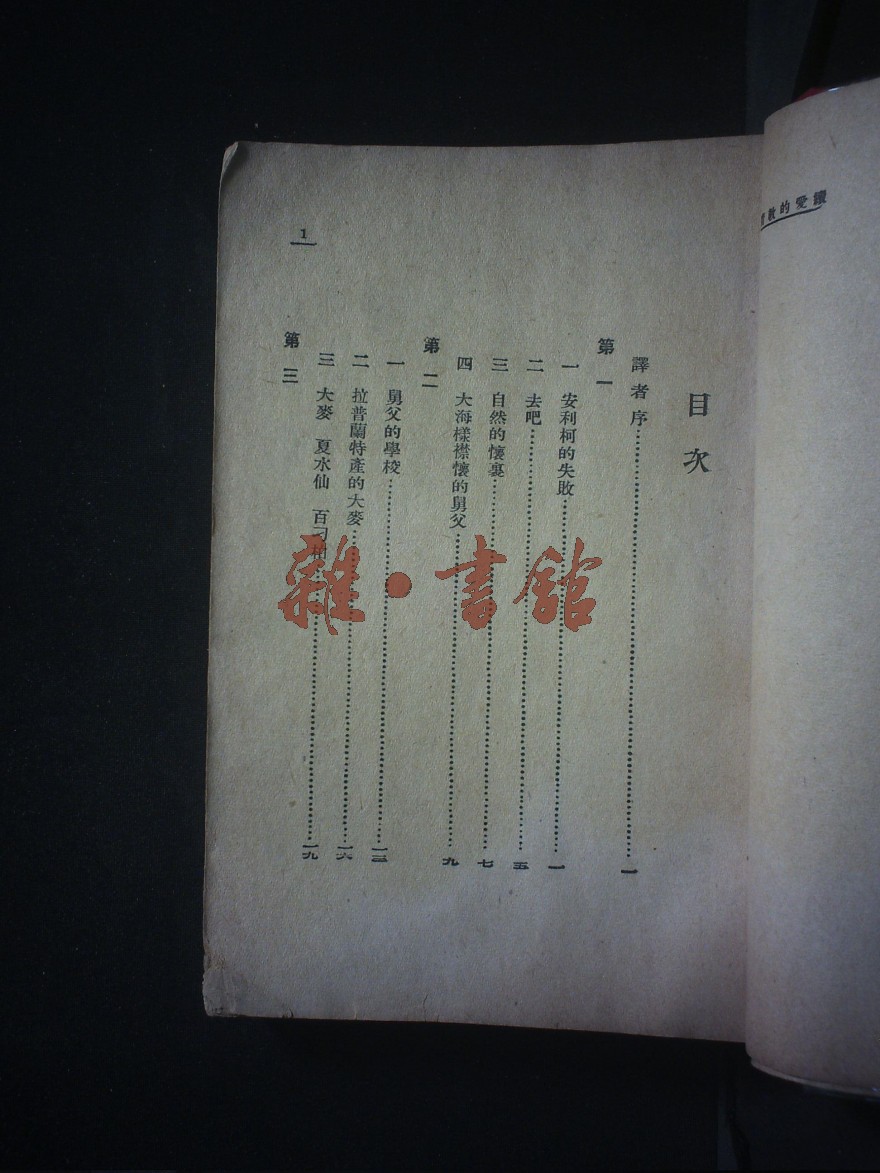 續愛的教
目次
譯者序……一
第一
一 安利柯的失敗……一
二 去吧……五
三 自然的懷裏……七
四 大海樣襟懷的舅父……九
第二
一 舅父的學校……一三
二 拉普蘭特產的大麥……一六
三 大麥 夏水仙 百……一九
第三
1
雜·書館